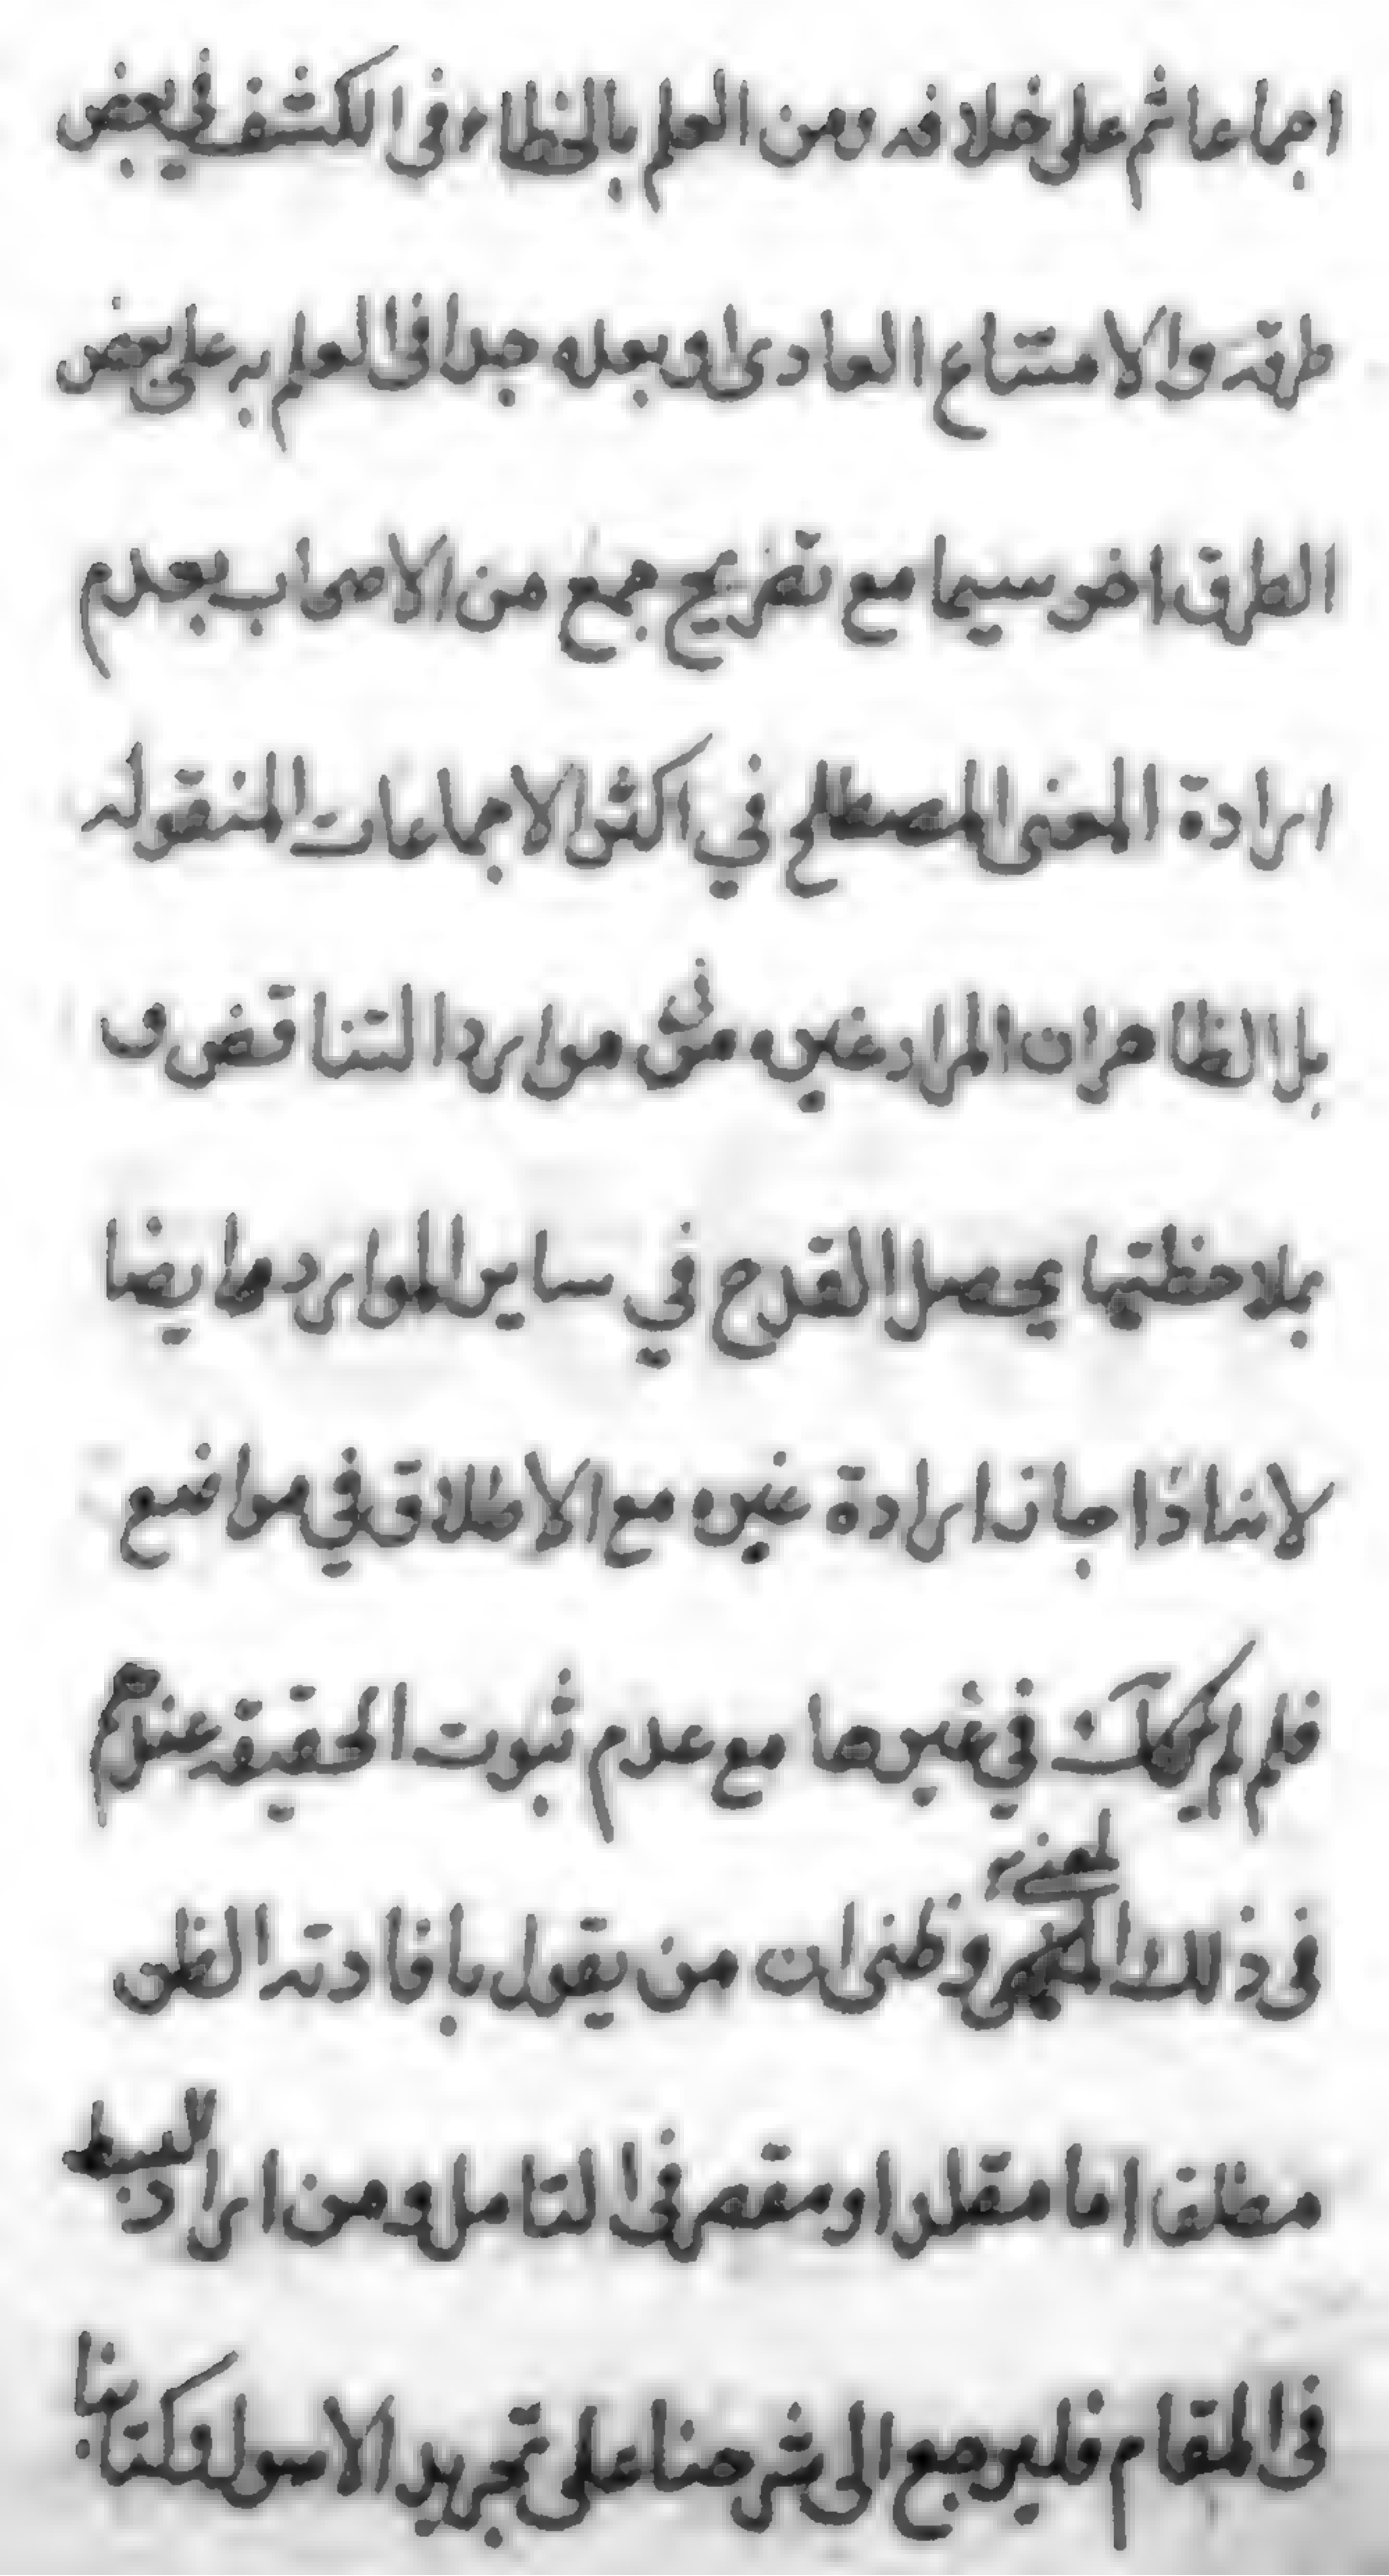 اجماعا ثم على خلافه ومن العلم بالخطاء في الكشف في بعض
طرقه والامتناع العادى او بعده جدا في العلم به على بعض
الطرق اخر سيما مع تصريح جمع من الاصحاب بعدم
ارادة المعنى المصطلح في اكثر الاجماعات المنقوله
بل الظاهر ان المراد غيره في موارد التناقض و
بملاحظتها يحصل القدح في ساير الموارد ايضا
لانا اذا جاز ارادة غيره مع الاطلاق في مواضع
فلم لم يمكن في غيرها مع عدم ثبوت الحقيقه عندهم
في ذلك المعنى وظنى ان من يقول بافادته الظن
مطلق اما مقلد او مقصر في التامل ومن اراد البسط
في المقام فليرجع الى شرحنا على تجريد الاسول وكتابنا